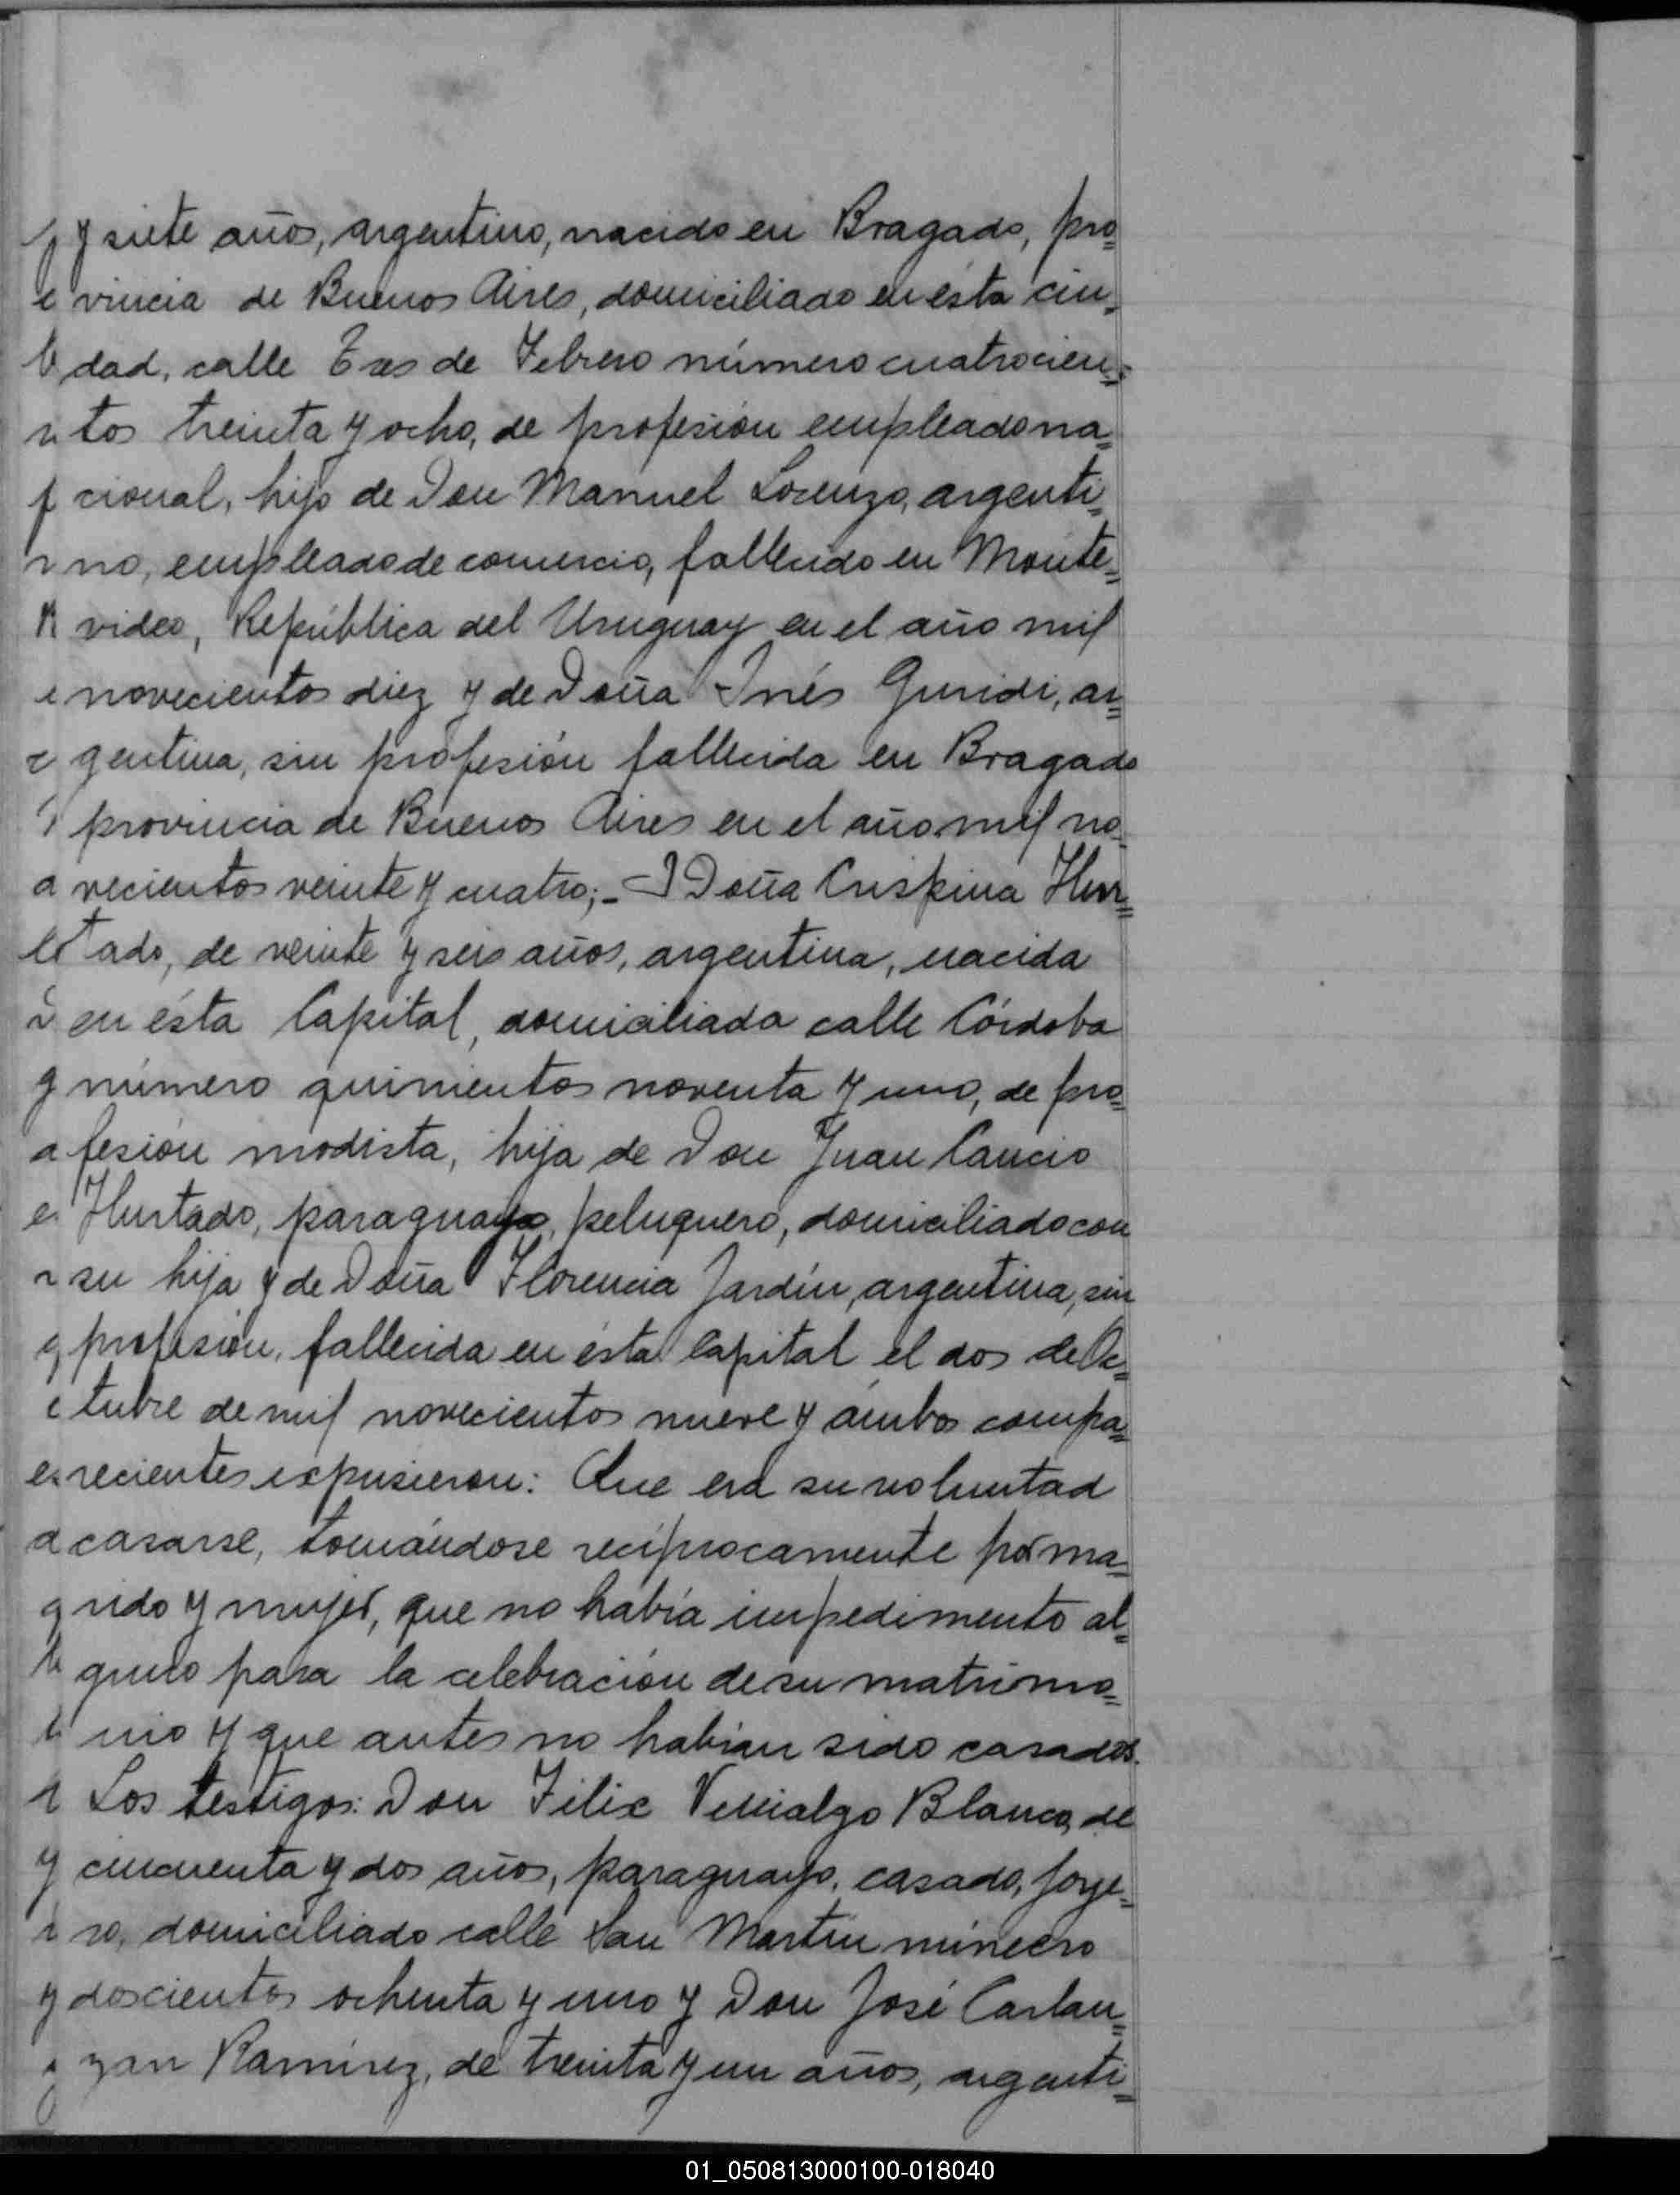 y siete años, argentino, nacido en Bragado, pro=
vincia de Buenos Aires, domiciliado en ésta ciu=
dad, calle Tres de Febrero número cuatrocien=
tos treinta y ocho, de profesión empleado na=
cional, hijo de Don Manuel Lorenzo, argenti=
no, empleado de comercio, fallecido en Monte=
video, República del Uruguay en el año mil
novecientos diez y de Doña Inés Guridi, ar=
gentina, sin profesión fallecida en Bragado
provincia de Buenos Aires en el año mil no=
vecientos veinte y cuatro;- Doña Crispina Hur=
tado, de veinte y seis años, argentina, nacida
en ésta Capital, domiciliada calle Córdoba
número quinientos noventa y uno, de pro=
fesión modista, hija de Don Juan Cancio
Hurtado, paraguayo, peluquero, domiciliado con
su hija y de Doña Florencia Jardín, argentina, sin
profesión, fallecida en ésta Capital el dos de Oc=
tubre de mil novecientos nueve y ámbos compa=
recientes expusieron: Que era su voluntad
casarse, tomándose recíprocamente por ma=
rido y mujer, que no había impedimento al=
guno para la celebración de su matrimo=
nio y que antes no habían sido casados.
Los testigos: Don Félix Blanco, de
cincuenta y dos años, paraguayo, casado, joye=
ro, domiciliado calle San Martín número
doscientos ochenta y uno y Don José Carlan=
zan Ramírez, de treinta y un años, argenti=
01_050813000100-018040